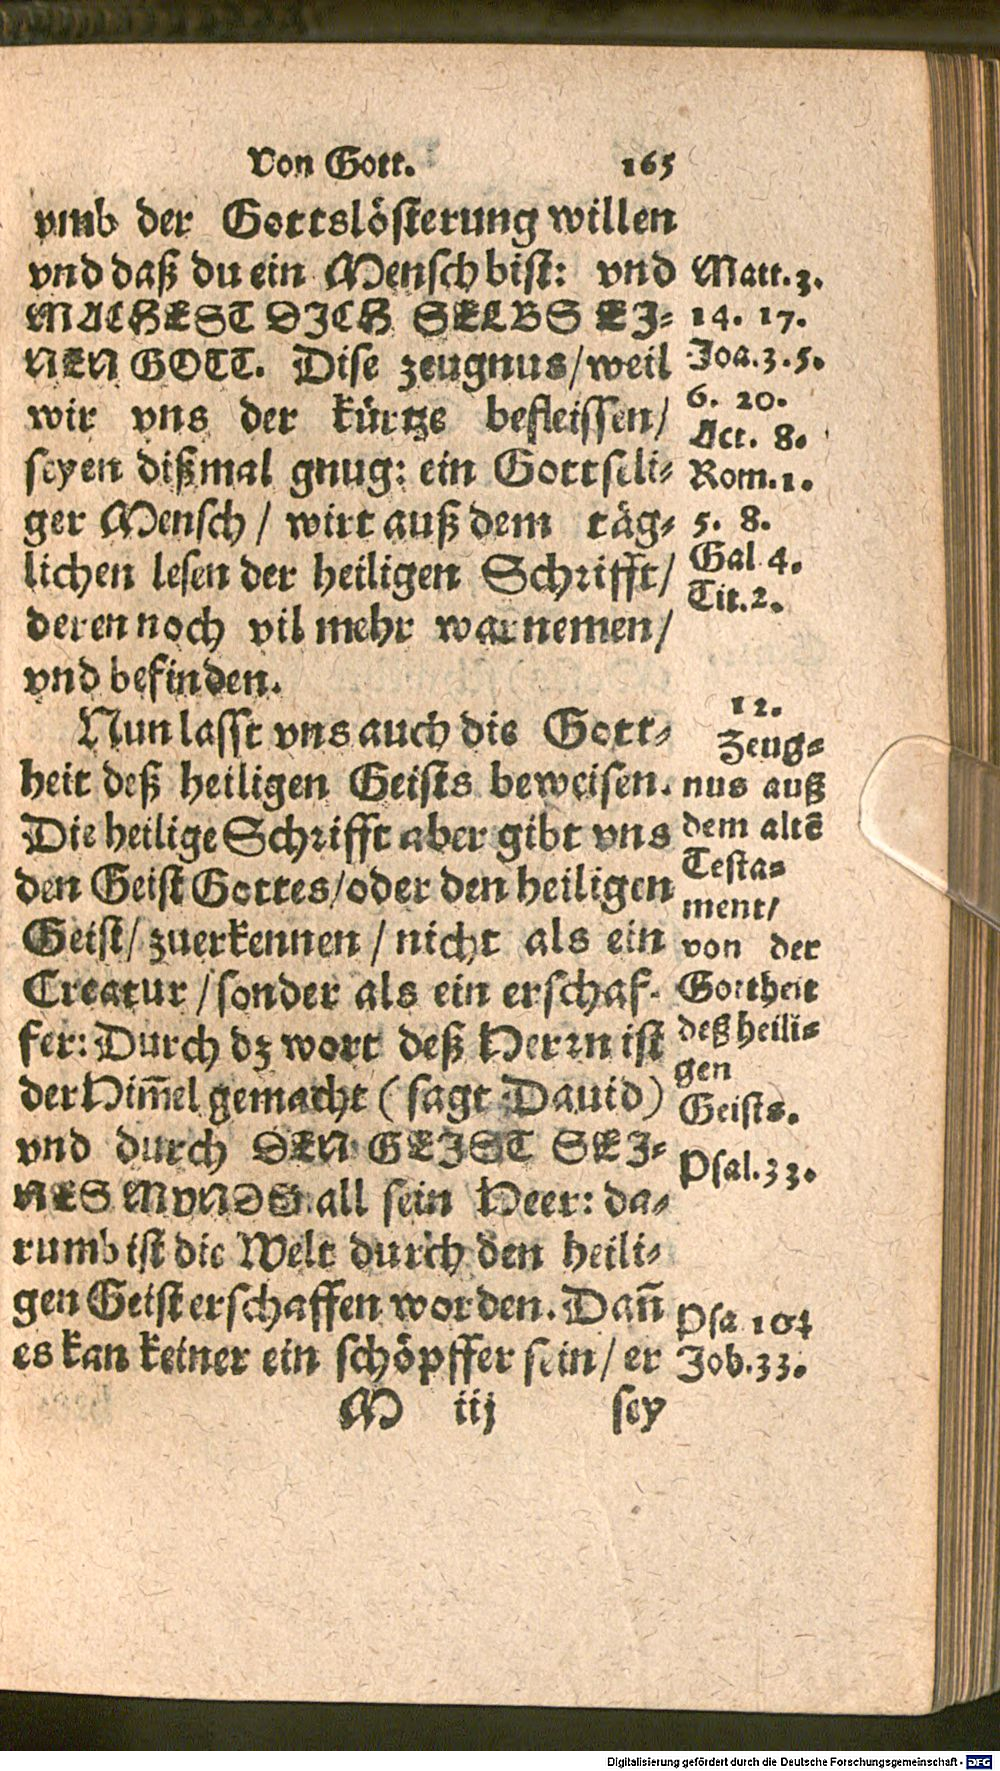 Von Gott. 165
vmb der Gottslösterung willen
vnd daß du ein Mensch bist: vnd
MACHEST DICH SELBS EJ-
NEN GOTT. Dise zeugnus/weil
wir vns der kürtze befleissen/
seyen dißmal gnug: ein Gottseli-
ger Mensch / wirt auß dem täg-
lichen lesen der heiligen Schrifft/
deren noch vil mehr warnemen/
vnd befinden.
Nun lasst vns auch die Gott-
heit deß heiligen Geists beweisen.
Die heilige Schrifft aber gibt vns
den Geist Gottes/oder den heiligen
Geist/ zuerkennen / nicht als ein
Creatur / sonder als ein erschaf-
fer: Durch dz wort deß Herrn ist
der Him̄el gemacht ( sagt Dauid)
vnd durch DEN GEJST SEJ-
NES MVNDS all sein Heer: da-
rumb ist die Welt durch den heili-
gen Geist erschaffen worden. Dan̄
es kan keiner ein schöpffer sein/ er
M iij sey
Matt.3.
14. 17.
Joa.3.5.
6. 20.
Act. 8.
Rom.1.
5. 8.
Gal 4.
Tit.2.
12.
Zeug-
nus auß
dem altē
Testa-
ment/
von der
Gottheit
deß heili-
gen
Geists.
Psal.33.
Psa 104
Job.33.
Digitalisierung gefördert durch die Deutsche Forschungsgemeinschaft - DFG